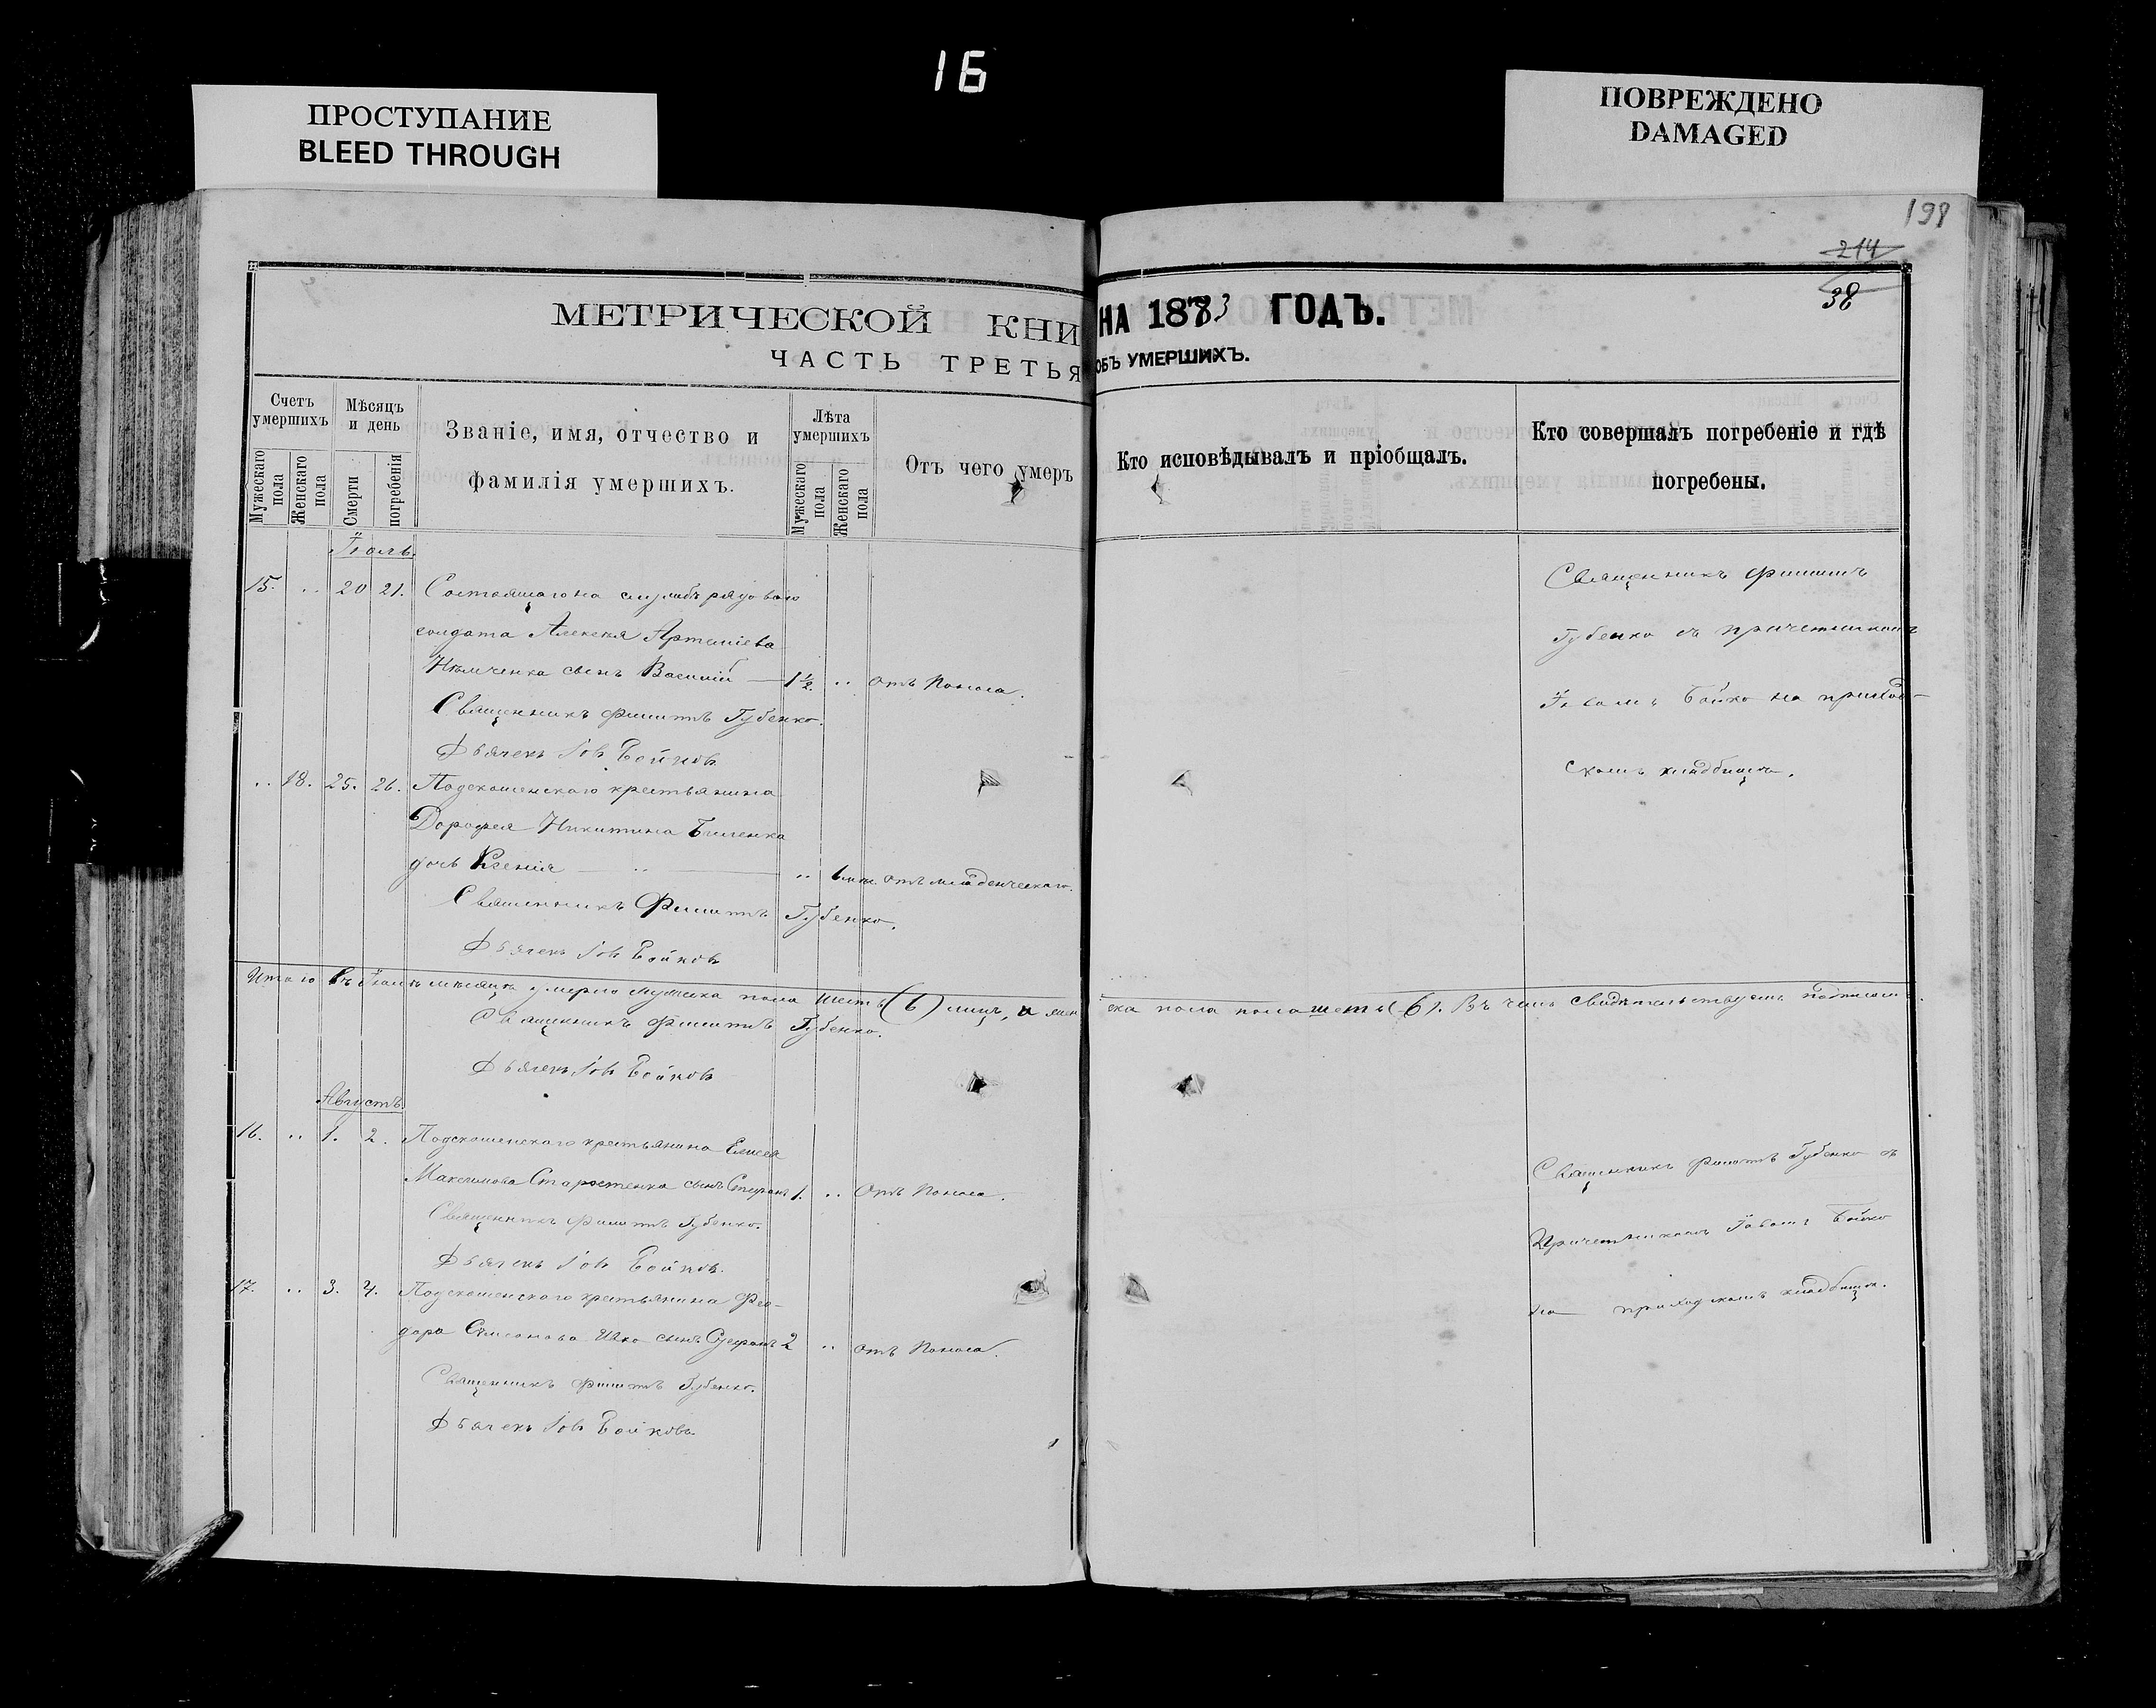 16
ПРОСТУПАНИЕ
BLEED THROUGH
ПОВРЕЖДЕНО
DAMAGED
198
214
38
МЕТРИЧЕСКОЙ КНИ
НА 1873 ГОДЪ.
ЧАСТЬ ТРЕТЬЯ
ОБЪ УМЕРШИХЪ.
Счетъ умершихъ
Мужескаго пола
Женскаго пола
Мѣсяцъ и день
Смерти
погребенія
Званіе, имя, отчество и
фамилія умершихъ.
Лѣта умершихъ
Мужескаго пола
Женскаго пола
Отъ чего умеръ
Кто исповѣдывалъ и пріобщалъ.
Кто совершалъ погребеніе и гдѣ
погребены.
Іюль.
15. .. 20 21. Состоящаго на службѣ рядоваго
солдата Алексѣя
сынъ Василій — 1 ½. .. отъ Поноса.
Священникъ Филиппъ Губенко.
Дьячекъ Іовъ Бойковъ
Священникъ Филиппъ
Губенко съ причетникомъ
Іовомъ Бойко на приход-
скомъ кладбищѣ.
.. 18. 25. 26. крестьянина
Дорофея Никитина
дочь Ксенія — .. — .. отъ младенческаго.
Священникъ Филиппъ Губенко.
Дьячекъ Іовъ Бойковъ
Итого въ Іюлѣ мѣсяцѣ умерло мужеска пола шесть (6) лицъ, и жен
ска пола пола шесть (6). Въ чемъ свидѣтельствуемъ подписом
Священникъ Филиппъ Губенко.
Дьячекъ Іовъ Бойковъ
Августъ.
16. .. 1. 2. крестьянина Елисея
Максимова Старостенка сынъ Стефанъ 1. .. Отъ Поноса.
Священникъ Филиппъ Губенко.
Дьячекъ Іовъ Бойковъ.
Священникъ Филиппъ Губенко съ
Причетникомъ Іовомъ Бойко
на приходскомъ кладбищѣ.
17. .. 3. 4. крестьянина Фео-
дора сынъ 2 .. отъ Поноса.
Священникъ Филиппъ Губенко.
Дьячекъ Іовъ Бойковъ.